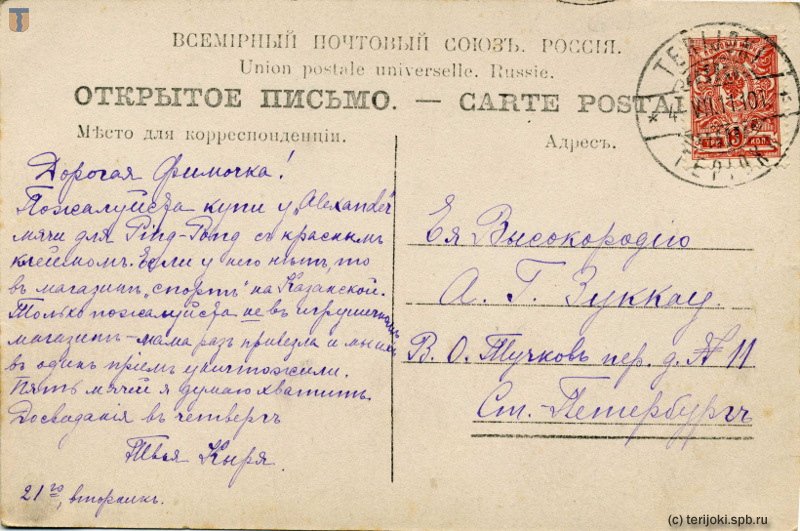 ВСЕМІРНЫЙ ПОЧТОВЫЙ СОЮЗЪ. РОССІЯ.
Union postale universelle. Russie.
ОТКРЫТОЕ ПИСЬМО. — CARTE POSTALE
Мѣсто для корреспонденціи.
Адресъ.
TERIJOKI
4. VII. 11. 10
Дорогая Фимочка!
Пожалуйста купи у „Alexander"
мячи для Ping-Pong съ краснымъ
клеймомъ. Если у него нѣтъ, то
въ магазинѣ „спортъ" на Казанской.
Только пожалуйста не въ игрушечномъ
магазинѣ - мама разъ привезла и мы ихъ
въ одинъ пріемъ уничтожили.
Пять мячей я думаю хватитъ.
Досвиданія въ четвергъ
Твоя Кыря.
21го, вторникъ.
Ея Высокородію
А. Г. Зуккау.
В. О. Тучковъ пер. д. № 11
Ст.-Петербургъ
(c) terijoki.spb.ru